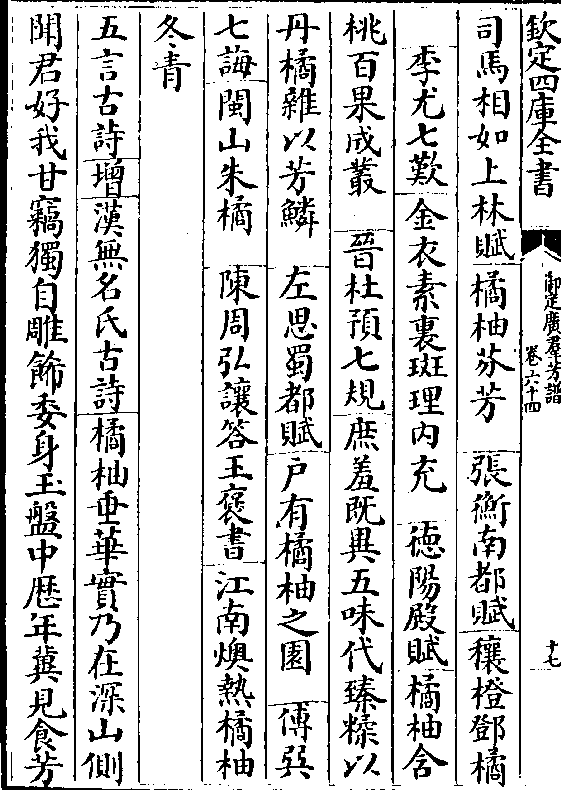 欽定四庫全書
御定廣羣芳譜
卷六十四
十七
司馬相如上林賦橘柚芬芳 張衡南都賦穰橙鄧橘
李尤七歎金衣素裏斑理內充 德陽殿賦橘柚含
桃百果成叢 晉杜預七規庶羞既異五味代臻糅以
丹橘雜以芳鱗 左思蜀都賦戶有橘柚之園 傅巽
七誨閩山朱橘 陳周弘讓答王褒書江南燠熱橘柚
冬青
五言古詩增漢無名氏古詩橘柚垂華實乃在深山側
聞君好我甘竊獨自雕飾委身玉盤中歷年冀見食芳